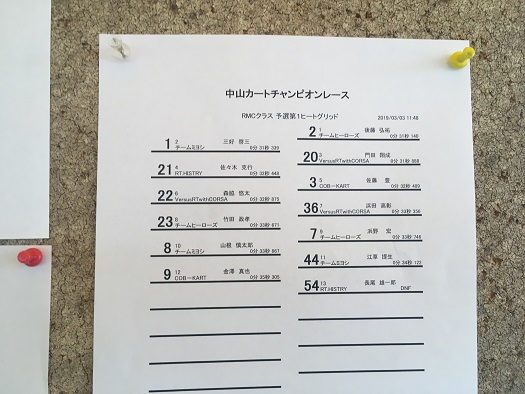 中山カートチャンピオンレース
RMCクラス 予選第1ヒートグリッド
2019/03/03 11:48
2 1 後藤 弘祐
チームヒーローズ 0分 31秒 140
1 2 三好 啓三
チームミヨシ 0分 31秒 339
20 3 門田 剛成
VersusRTwithCORSA 0分 31秒 858
21 4 佐々木 克行
RT.HISTRY 0分 32秒 448
3 5 佐藤 豊
COB-KART 0分 32秒 489
22 6 森脇 悠太
VersusRTwithCORSA 0分 32秒 875
36 7 浜田 高彰
VersusRTwithCORSA 0分 33秒 356
23 8 竹田 政孝
チームヒーローズ 0分 33秒 671
7 9 浜野 宏
チームヒーローズ 0分 33秒 746
8 10 山根 慎太郎
チームミヨシ 0分 33秒 867
44 11 江草 提生
チームミヨシ 0分 34秒 122
9 12 金澤 真也
COB-KART 0分 35秒 305
54 13 長尾 雄一郎
RT.HISTRY DNF